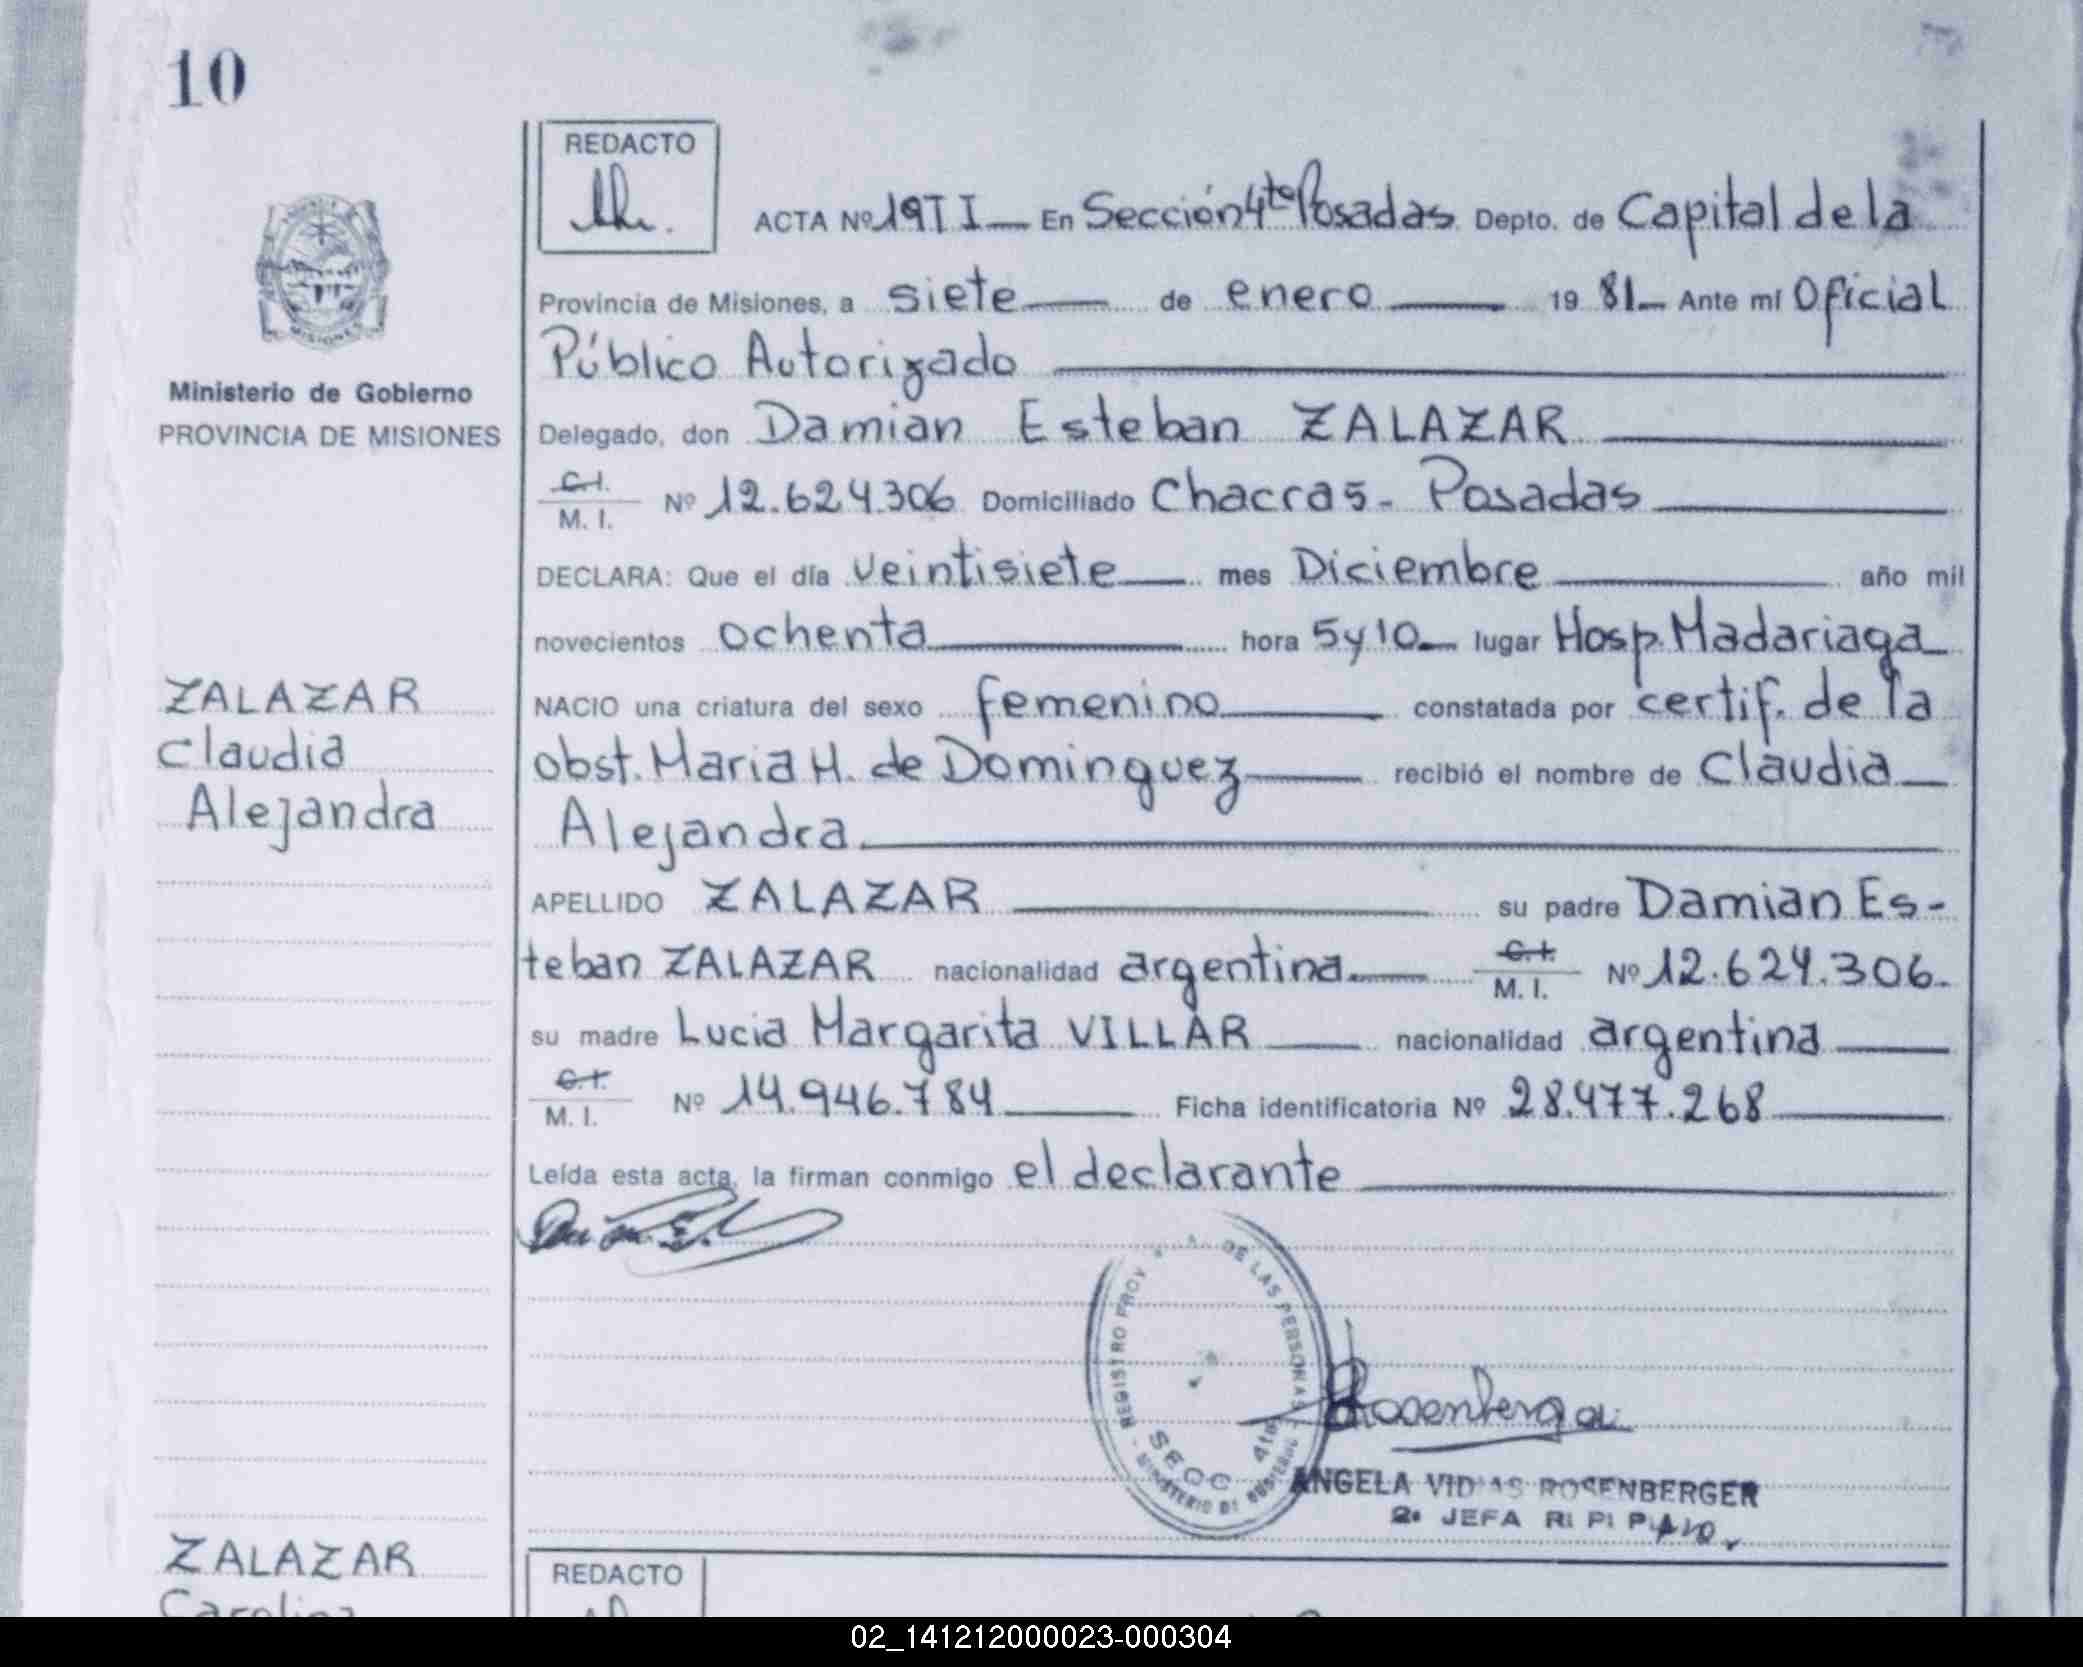 10
REDACTO
ACTA Nº 19T I En Sección 4ta Posadas Depto. de Capital de la
Provincia de Misiones, a siete de enero 19 81 Ante mí Oficial
Público Autorizado
Ministerio de Gobierno
PROVINCIA DE MISIONES
Delegado, don Damian Esteban ZALAZAR
C.I.
M. I. Nº 12.624.306 Domiciliado Chacra 5 - Posadas
DECLARA: Que el día veintisiete mes Diciembre año mil
novecientos ochenta hora 5y10 lugar Hosp. Madariaga
ZALAZAR
Claudia
Alejandra
NACIO una criatura del sexo femenino constatada por certif. de la
obst. Maria H. de Dominguez recibió el nombre de Claudia
Alejandra
APELLIDO ZALAZAR su padre Damian Es-
teban ZALAZAR nacionalidad argentina C.I.
M. I. Nº 12.624.306.
su madre Lucia Margarita VILLAR nacionalidad argentina
C.I.
M. I. Nº 14.946.784 Ficha identificatoria Nº 28.477.268
Leída esta acta, la firman conmigo el declarante
REGISTRO PROV DE LAS PERSONAS
SECC 4ta
MINISTERIO DE
ANGELA ROSENBERGER
2º JEFA
ZALAZAR
Carolina
REDACTO
02_141212000023-000304